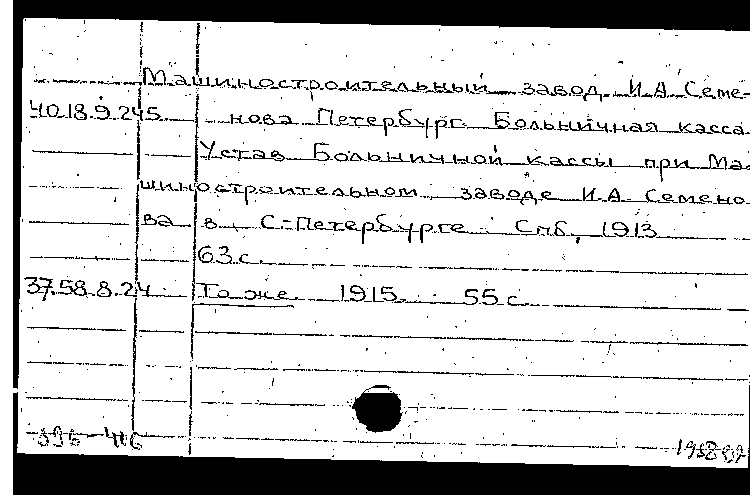 Машиностроительный завод И.А. Семе-
40.18.9.245 нова Петербург. Больничная касса.
Устав Больничной кассы при Ма-
шиностроительном заводе И.А. Семено
ва в С-Петербурге. Спб, 1913
63 с.
37.58.8.24 То же 1915. 55 с.